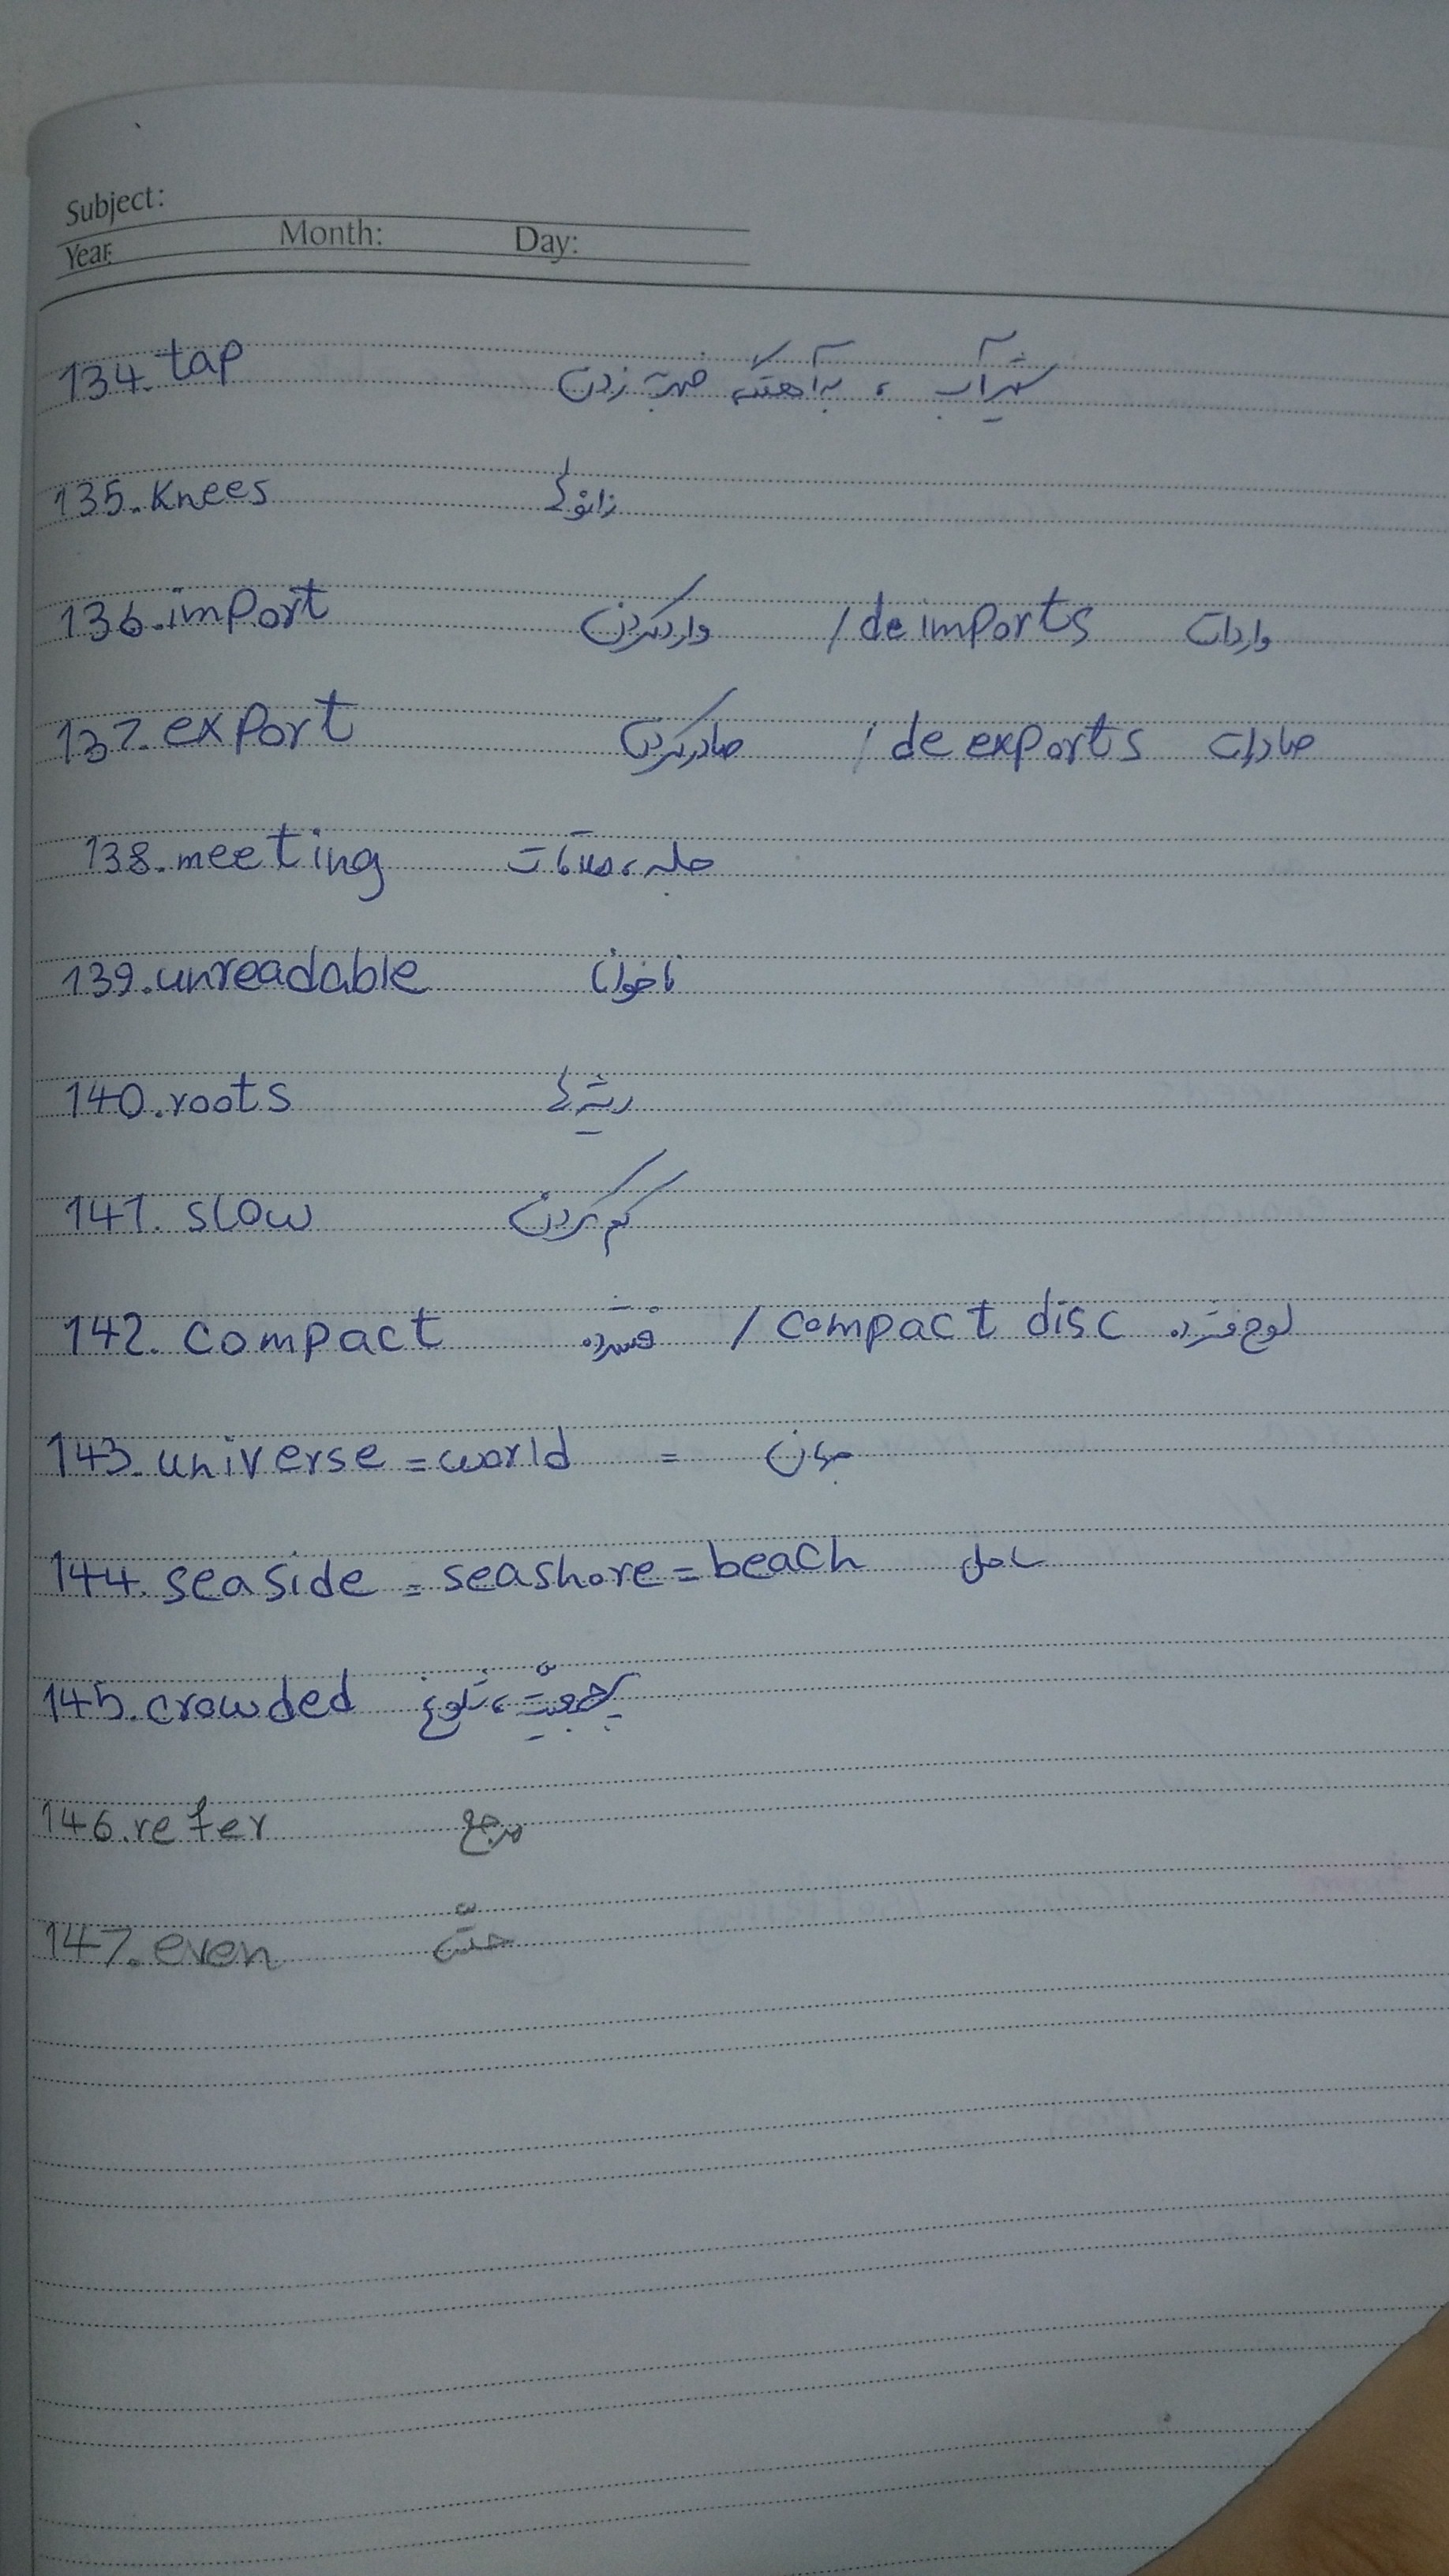 Subject:
Year: Month: Day:
134. tap شیر آب ، به آهستگی ضربت زدن
135. Knees زانو ها
136. import وارد کردن / de imports واردات
137. export صادر کردن / de exports صادرات
138. meeting جلسه ، ملاقات
139. unreadable ناخوانا
140. roots ریشه ها
141. slow کم کردن
142. compact فشرده / compact disc لوح فشرده
143. universe = world = جهان
144. seaside = seashore = beach ساحل
145. crowded پرجمعیّت ، شلوغ
146. refer مرجع
147. even حتّی